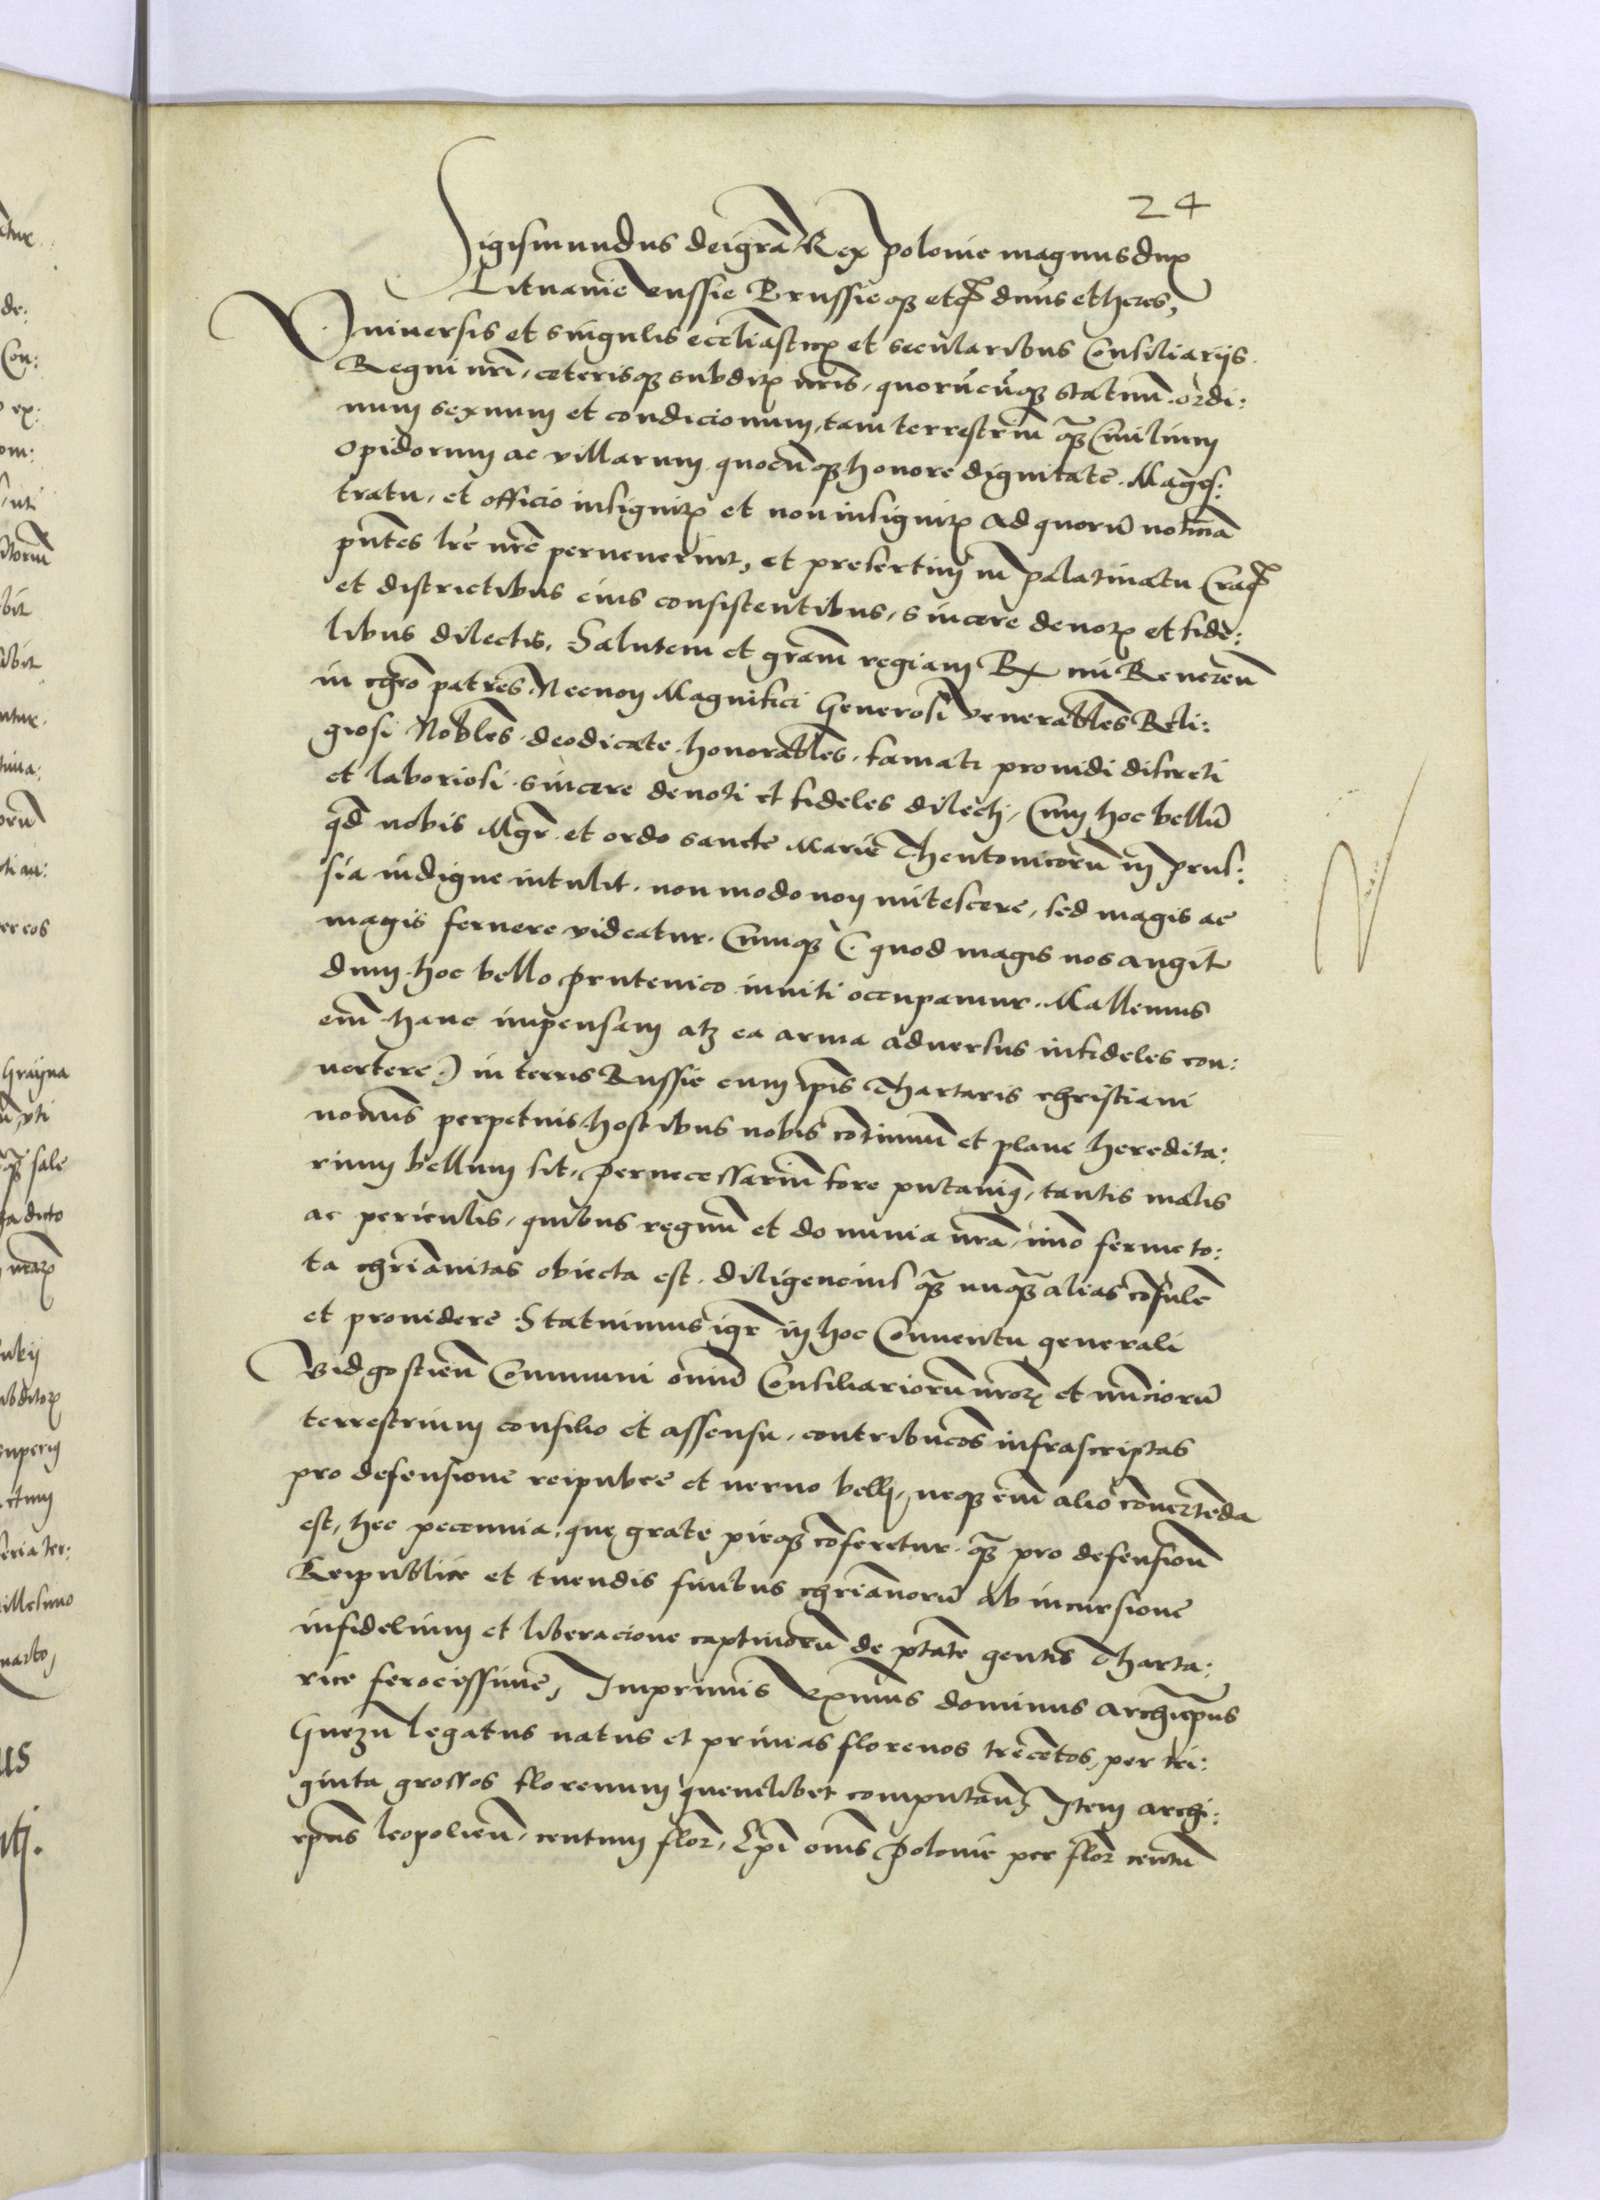 24
Sigismundus dei gra Rex polonie magnus dux
Lituanie russie Prussieq etc dnus et heres,
Universis et singulis eccliastic et secularibus Consiliarijs
Regni nri, ceterisq subdit nris, quorucuq statuu ordi:
num sexuum et condicionum, tam terrestrium q Civilium
opidorum ac villarum quocunq honore dignitate Magis:
tratu, et officio insignit et non insignit ad quoru noticia
pntes lre nre pervenerint, et presertim in palatinatu Crac
et districtibus eius consistentibus, sincere devot et fide:
libus dilectis, Salutem et gram regiam Rx mi Reveren
in chro patres Necnon Magnifici Generosi venerabiles Reli:
giosi Nobles deodicate honorabiles famati providi discreti
et laboriosi sincere devoti et fideles dilecti, Cum hoc bellu
qd nobis Mgr et ordo sancte Marie Theutonicoru in Prus:
sia indigne intulit non modo non mitescere, sed magis ac
magis fervere videatur. Cumq (quod magis nos angit
dum hoc bello Prutenico inviti occupamur. Mallemus
eni hanc impensam atq ea arma adversus infideles con:
vertere) in terris Russie cum ipis Thartaris christiani
nomis perpetuis hostibus nobis cotinuu et plane heredita:
rium bellum sit, Pernecessariu fore putavim, tantis malis
ac periculis, quibus regnu et dominia nra, imo ferme to:
ta chrianitas obiecta est. diligencius q unq alias cosule
et providere Statuimus igr in hoc Conventu generali
Bidgostien Communi oniu Consiliarioru nror et nuncioru
terrestrium consilio et assensu, contribucoes infrascriptas
pro defensione reipubce et nervo belli, neq eni alio convertenda
est, hec peccunia, que grate pieq coferetur q pro defension
Reipublice et tuendis finibus chrianoru ab incursione
infidelium et liberacione captivoru de ptate gentis Tharta:
rice ferocissime, Imprimis Rxmus dominus archiepus
Gnezn legatus natus et primas florenos trecetos, per tri:
ginta grossos florenum quemlibet computan Item archi:
epus leopolien, centum flor, Epi ons Polonie per flor centu